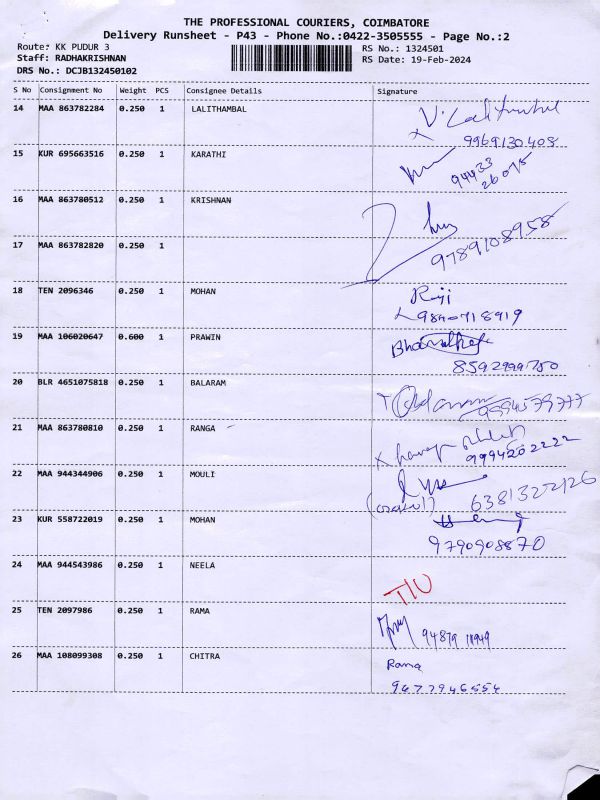 THE PROFESSIONAL COURIERS, COIMBATORE
Delivery Runsheet - P43 - Phone No.:0422-3505555 - Page No.:2
Route: KK PUDUR 3 RS No.: 1324501
Staff: RADHAKRISHNAN RS Date: 19-Feb-2024
DRS No.: DCJB132450102
S No Consignment No Weight PCS Consignee Details Signature
14 MAA 863782284 0.250 1 LALITHAMBAL
9969130408
15 KUR 695663516 0.250 1 KARATHI
94433
26075
16 MAA 863780512 0.250 1 KRISHNAN
9789108958
17 MAA 863782820 0.250 1
18 TEN 2096346 0.250 1 MOHAN Raji
9840718919
19 MAA 106020647 0.600 1 PRAWIN
8592999750
20 BLR 4651075818 0.250 1 BALARAM
9994579777
21 MAA 863780810 0.250 1 RANGA
9994202222
22 MAA 944344906 0.250 1 MOULI
6381322126
23 KUR 558722019 0.250 1 MOHAN
9790908870
24 MAA 944543986 0.250 1 NEELA T/U
25 TEN 2097986 0.250 1 RAMA
94879 11949
26 MAA 108099308 0.250 1 CHITRA Rama
9677946554